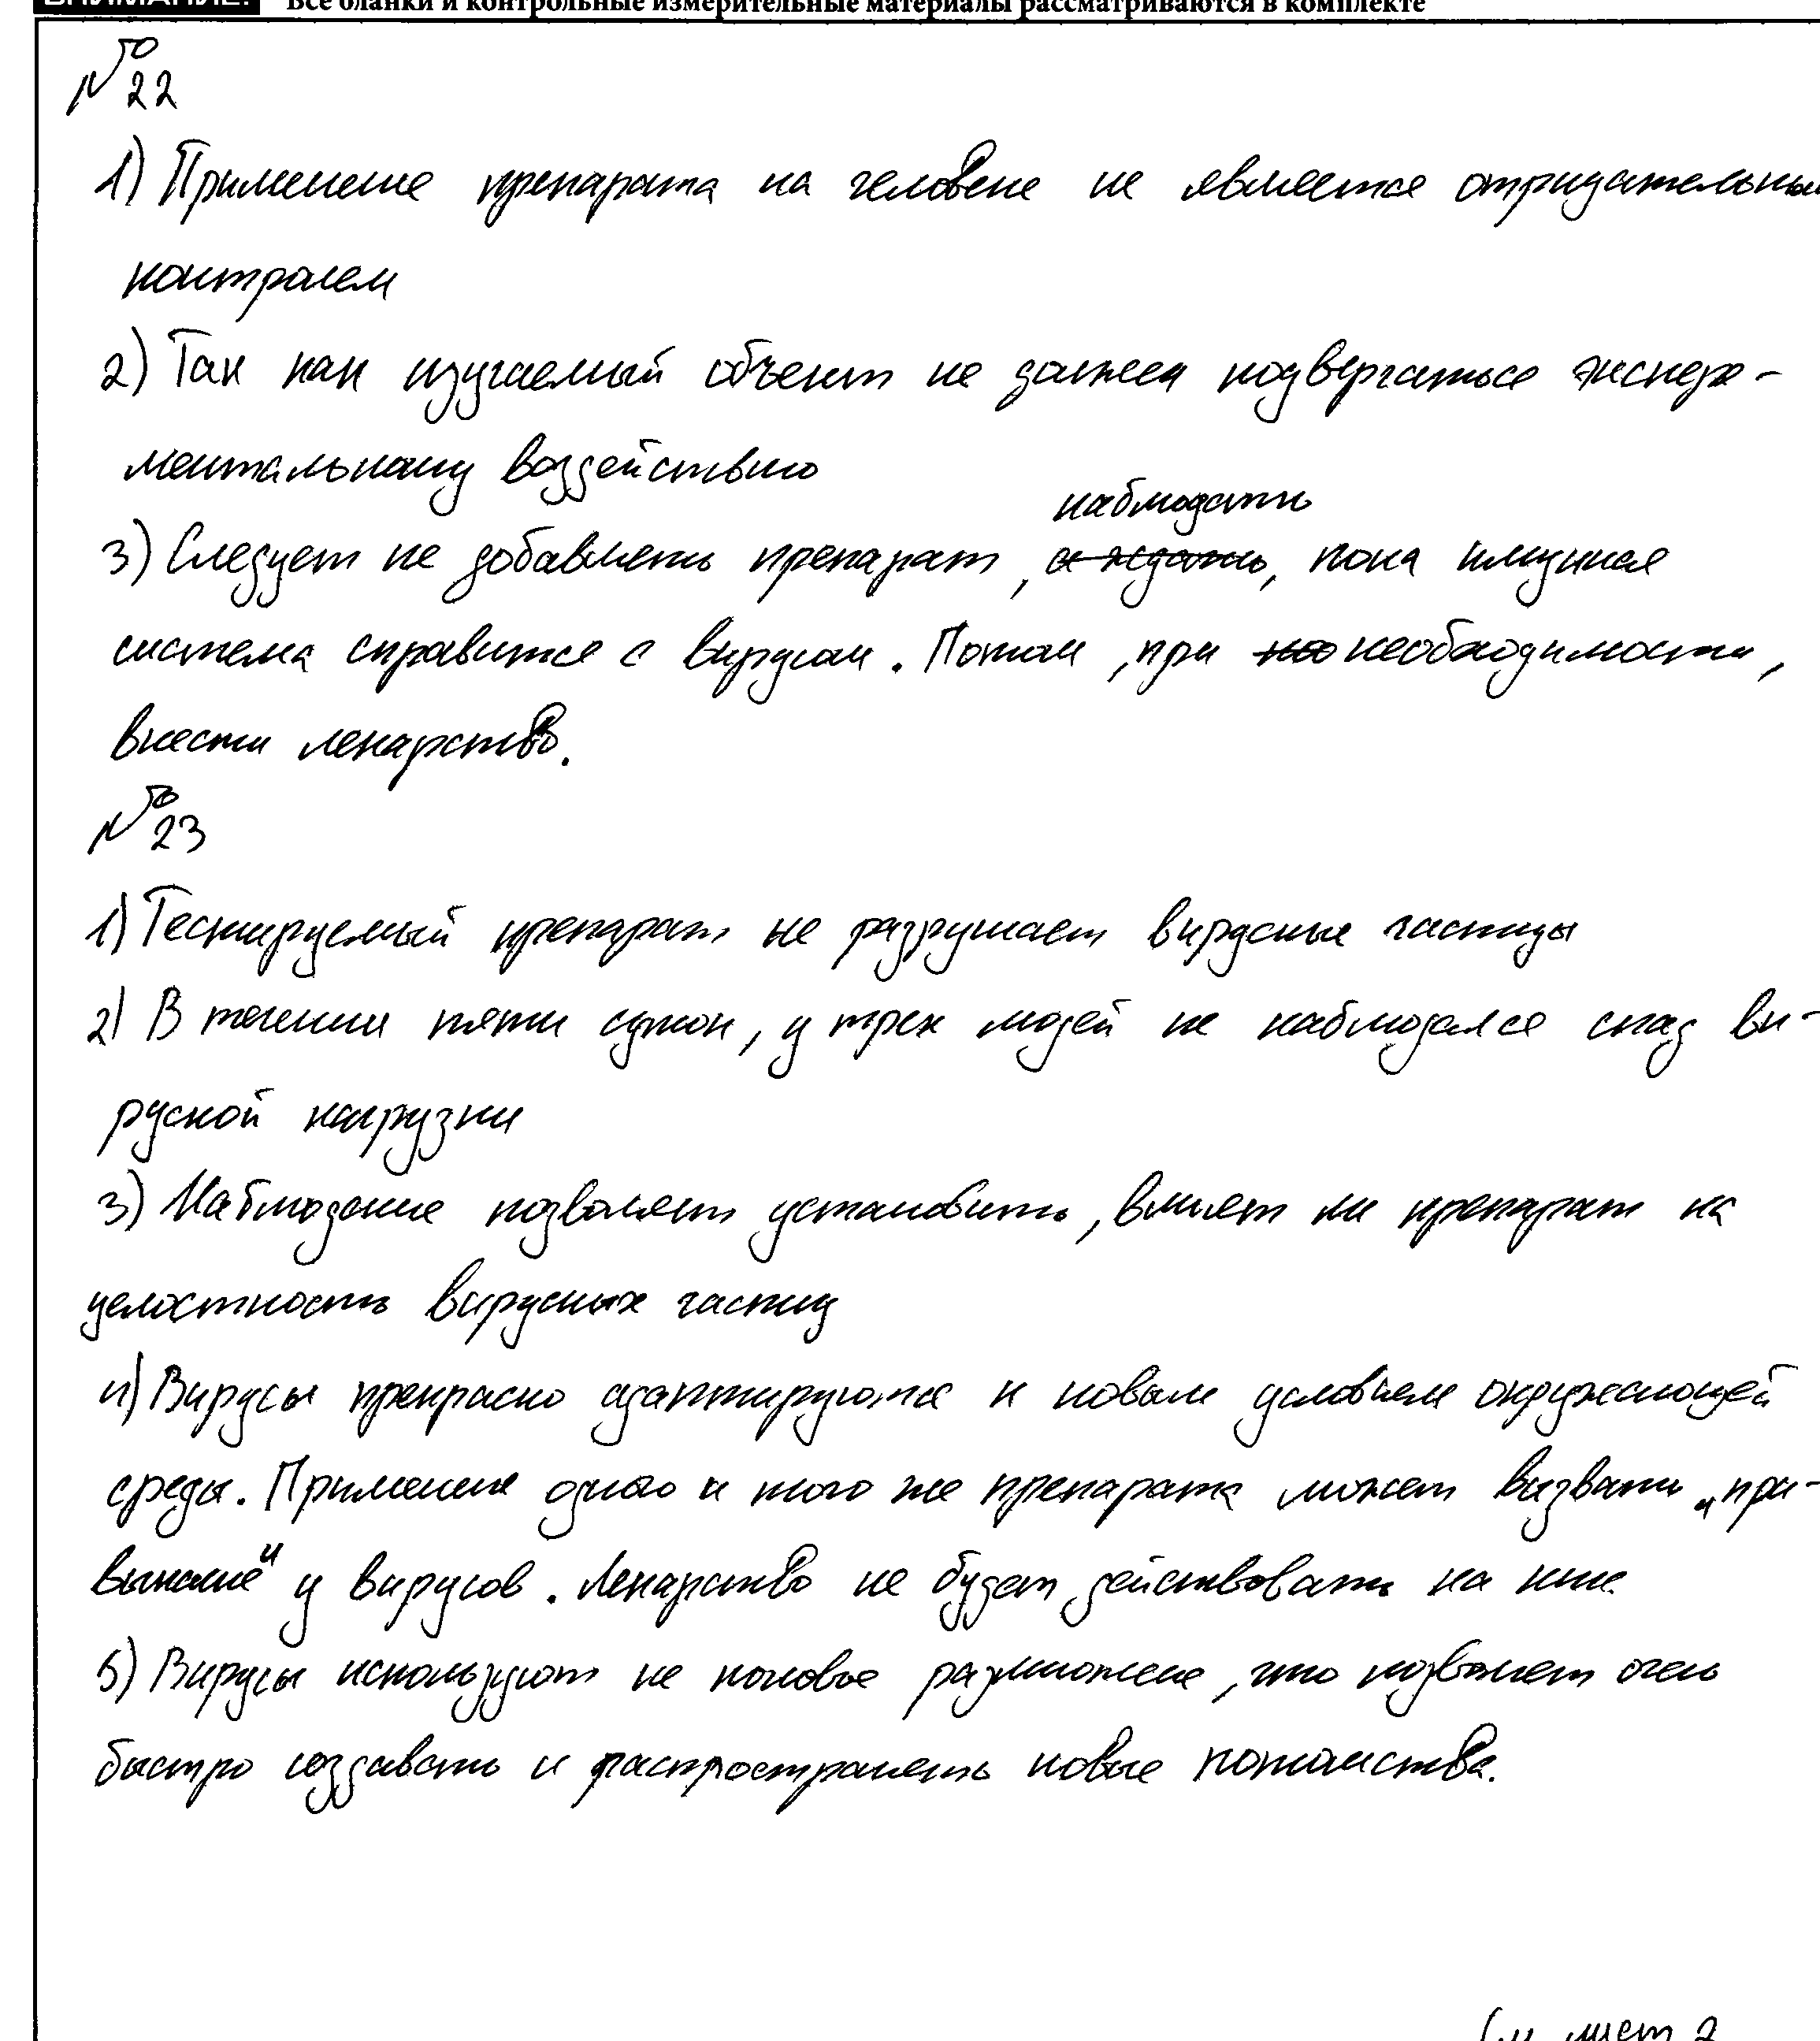 ВНИМАНИЕ! Все бланки и контрольные измерительные материалы рассматриваются в комплекте
№ 22
1) Применение препарата на человеке не является отрицательным
контролем
2) Так как изучаемый объект не должен подвергаться экспере-
ментальному воздействию
наблюдать
3) Следует не добавлять препарат, а ждать, пока имунная
система справится с вирусом. Потом, при необходимости,
внести лекарство.
№ 23
1) Тестируемый препарат не разрушает вирусные частицы
2) В течении пяти суток, у трех людей не наблюдался спад ви-
русной нагрузки
3) Наблюдение позволяет установить, влияет ли препарат на
целостность вирусных частиц
4) Вирусы прекрасно адаптируются к новым условием окружающей
среды. Применение одного и того же препарата может вызвать „при-
выкание" у вирусов. Лекарство не будет действовать на них.
5) Вирусы используют не половое размножение, что позволяет очень
быстро создавать и распространять новые потомства.
См лист 2